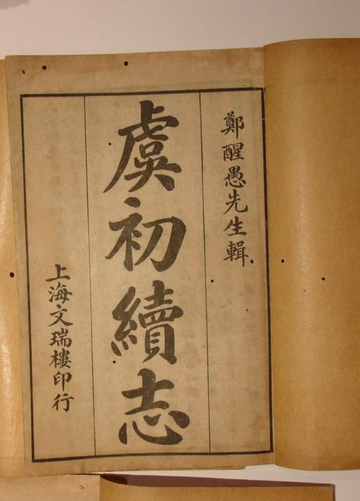 鄭醒愚先生輯
虞初續志
上海文瑞樓印行